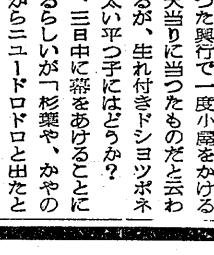 つた興行で一度小屋をかける
大当りに当つたものだと云わ
るが、生れ付きドショツポネ
太い平つ子にはどうか?
、三日中に幕をあけることに
るらしいが「杉葉や、かやの
からニユードロドロと出たと